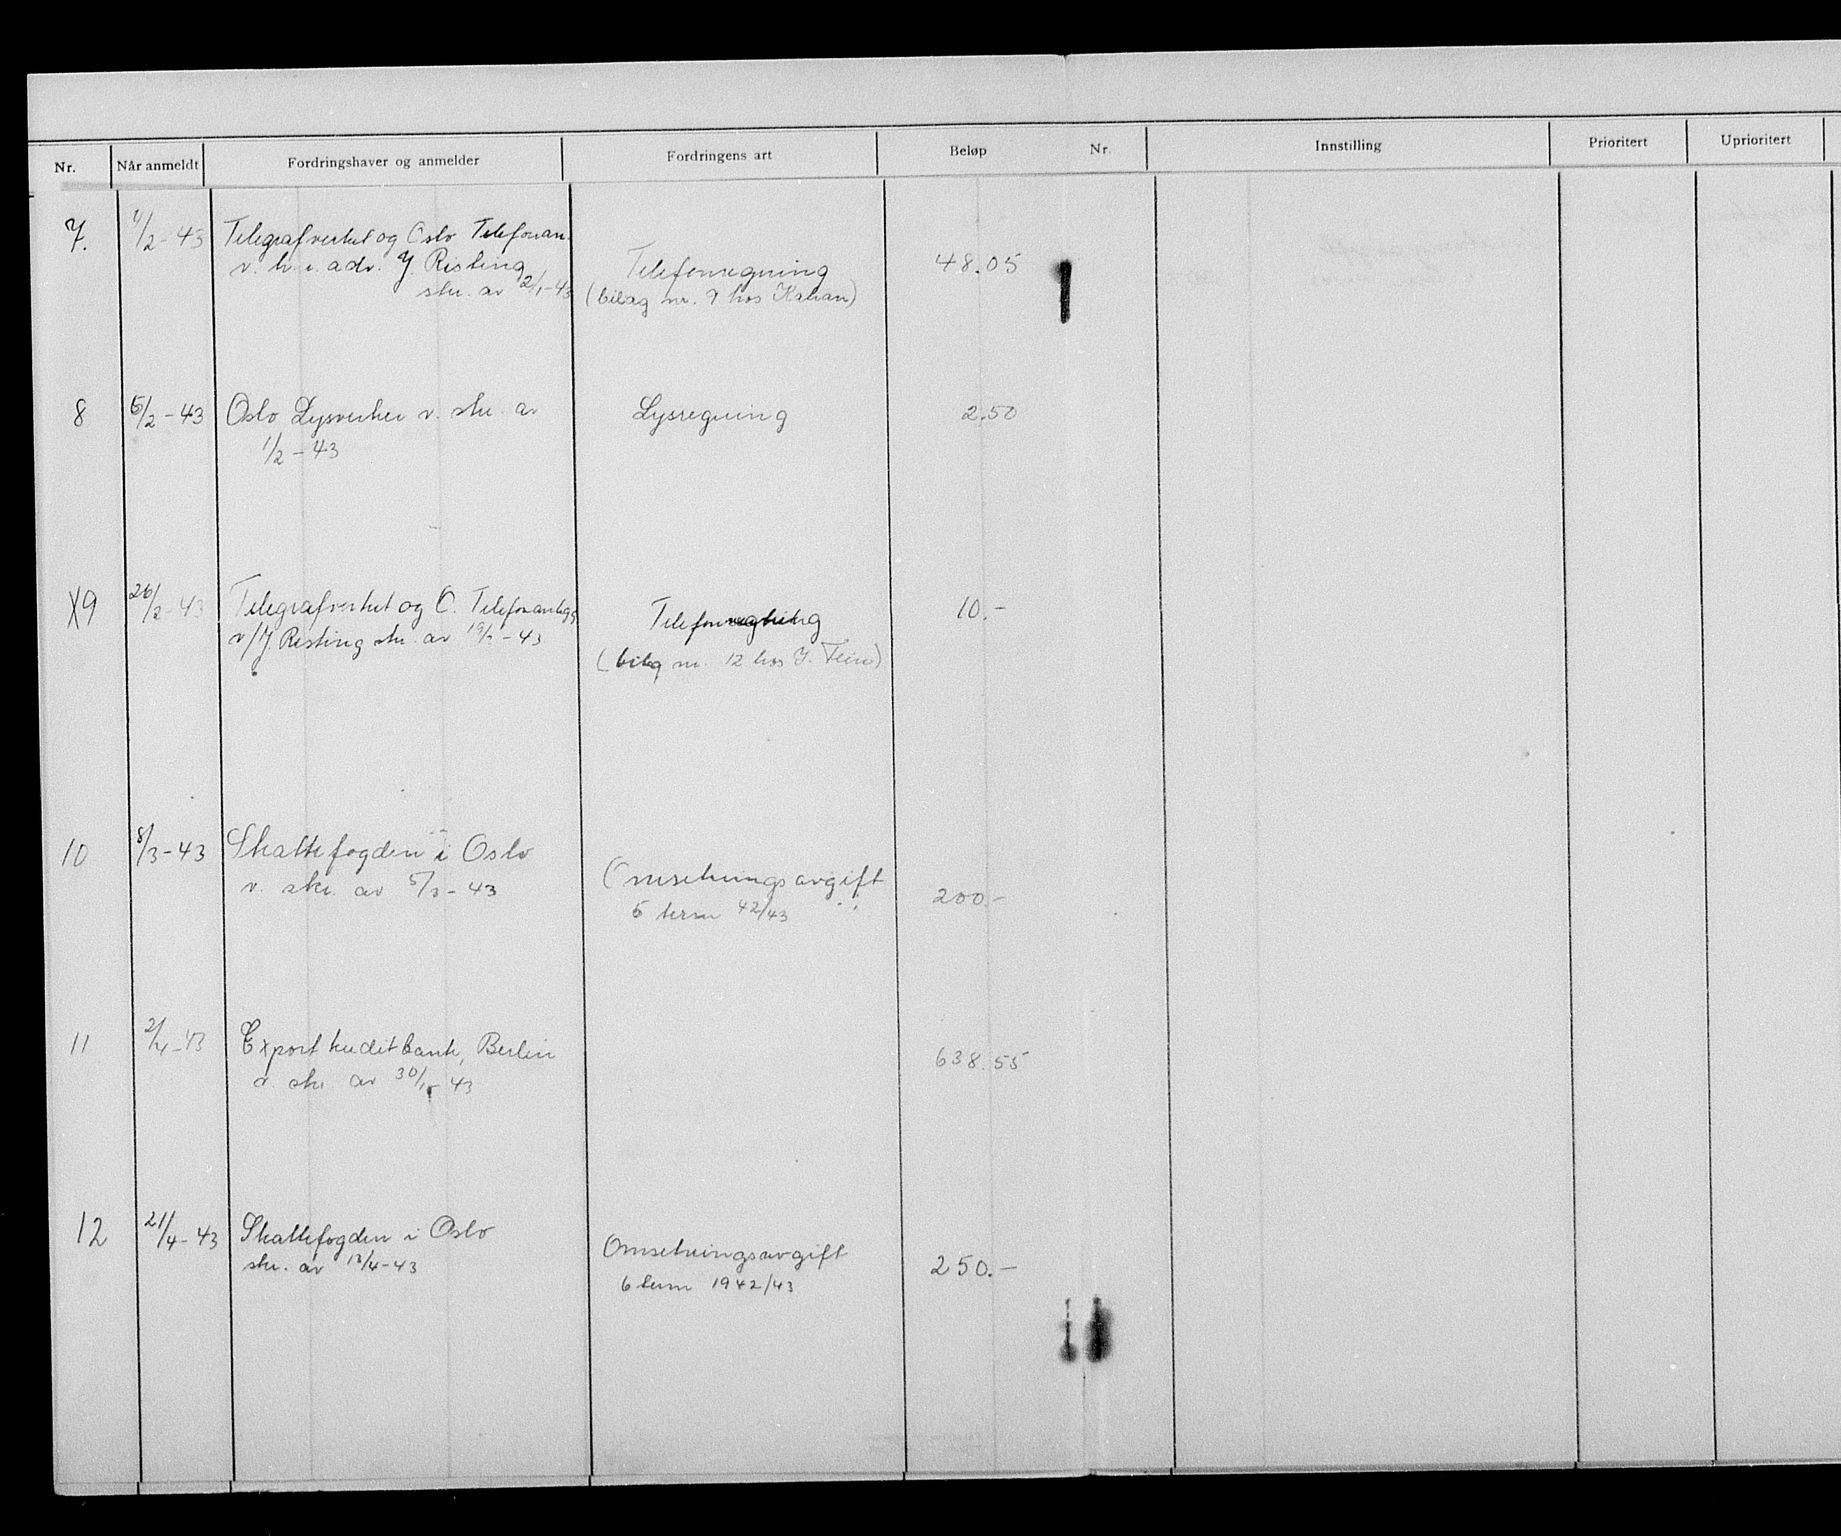 Nr. Når anmeldt Fordringshaver og anmelder Fordringens art Beløp Nr. Innstilling Prioritert Uprioritert
7. 1/2-43 Telegrafverket og Oslo Telefonan.
v. h.r. adv. J. Risting Telefonregning 48.05
skr. av 2/1-43 (bilag nr. 9 hos Kahan)
8 5/2-43 Oslo Lysverker v. skr. av Lysregning 2.50
1/2-43
X9 26/2-43 Telegrafverket og O. Telefonanlegg Telefonregning 10.-
v/J. Risting skr. av 19/2-43
(bilag nr. 12 hos J. Fein)
10 8/3-43 Skattefogden i Oslo
v. skr. av 5/3-43 Omsetningsavgift 200.-
5 term 42/43
11 2/4-43 Exportkreditbank, Berlin 638.55
v. skr. av 30/1-43
12 21/4-43 Skattefogden i Oslo
skr. av 13/4-43 Omsetningsavgift 250.-
6 term 1942/43